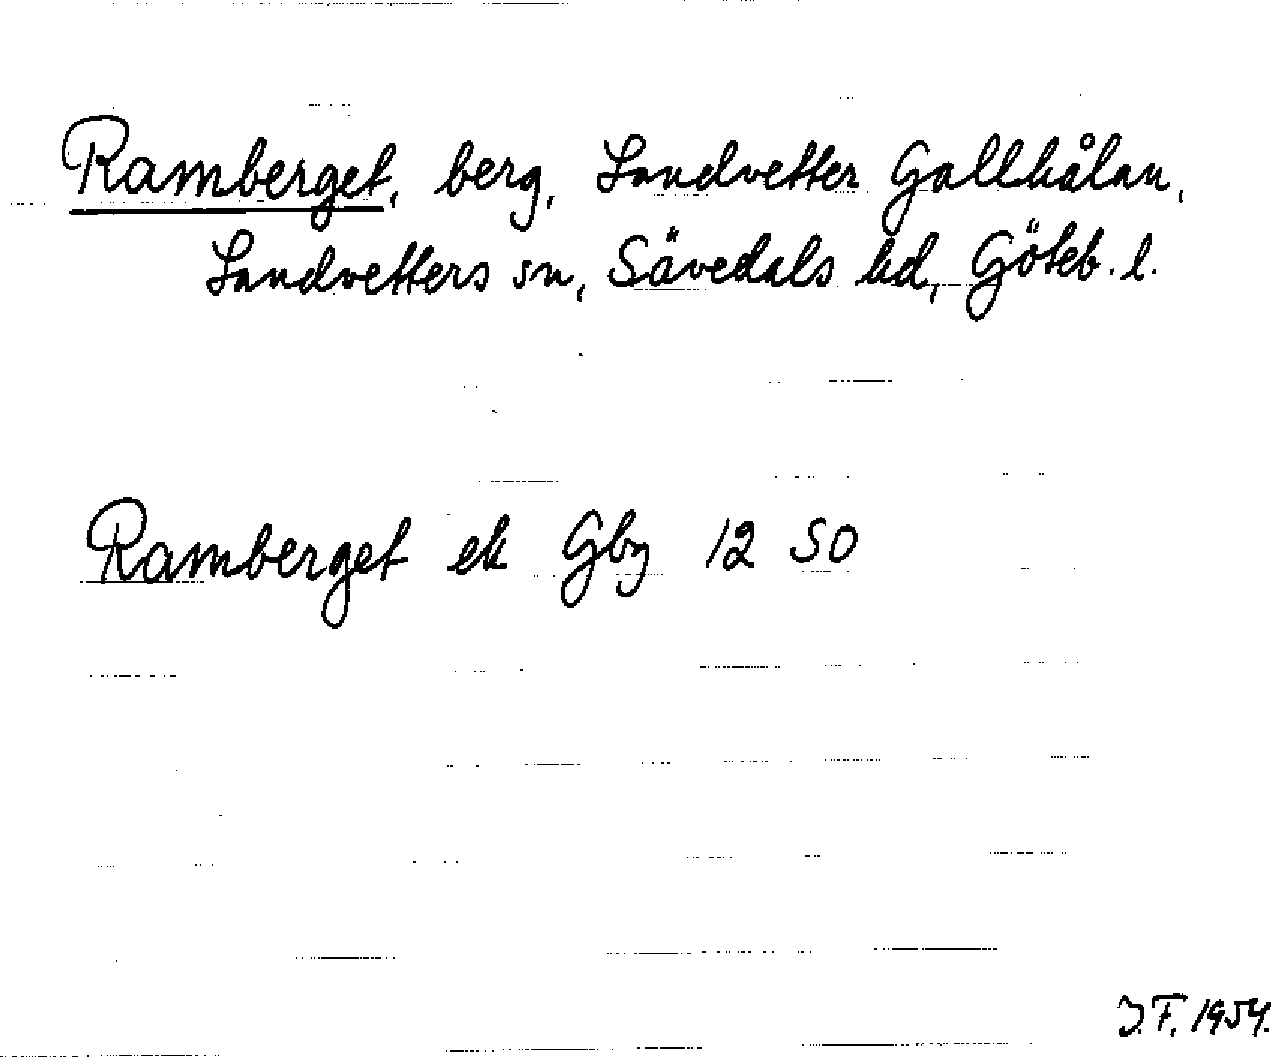 Ramberget, berg, Landvetter Gallhålan,
Landvetters sn, Sävedals hd, Göteb. l.
Ramberget ek Gbg 12 SO
J.F. 1954.